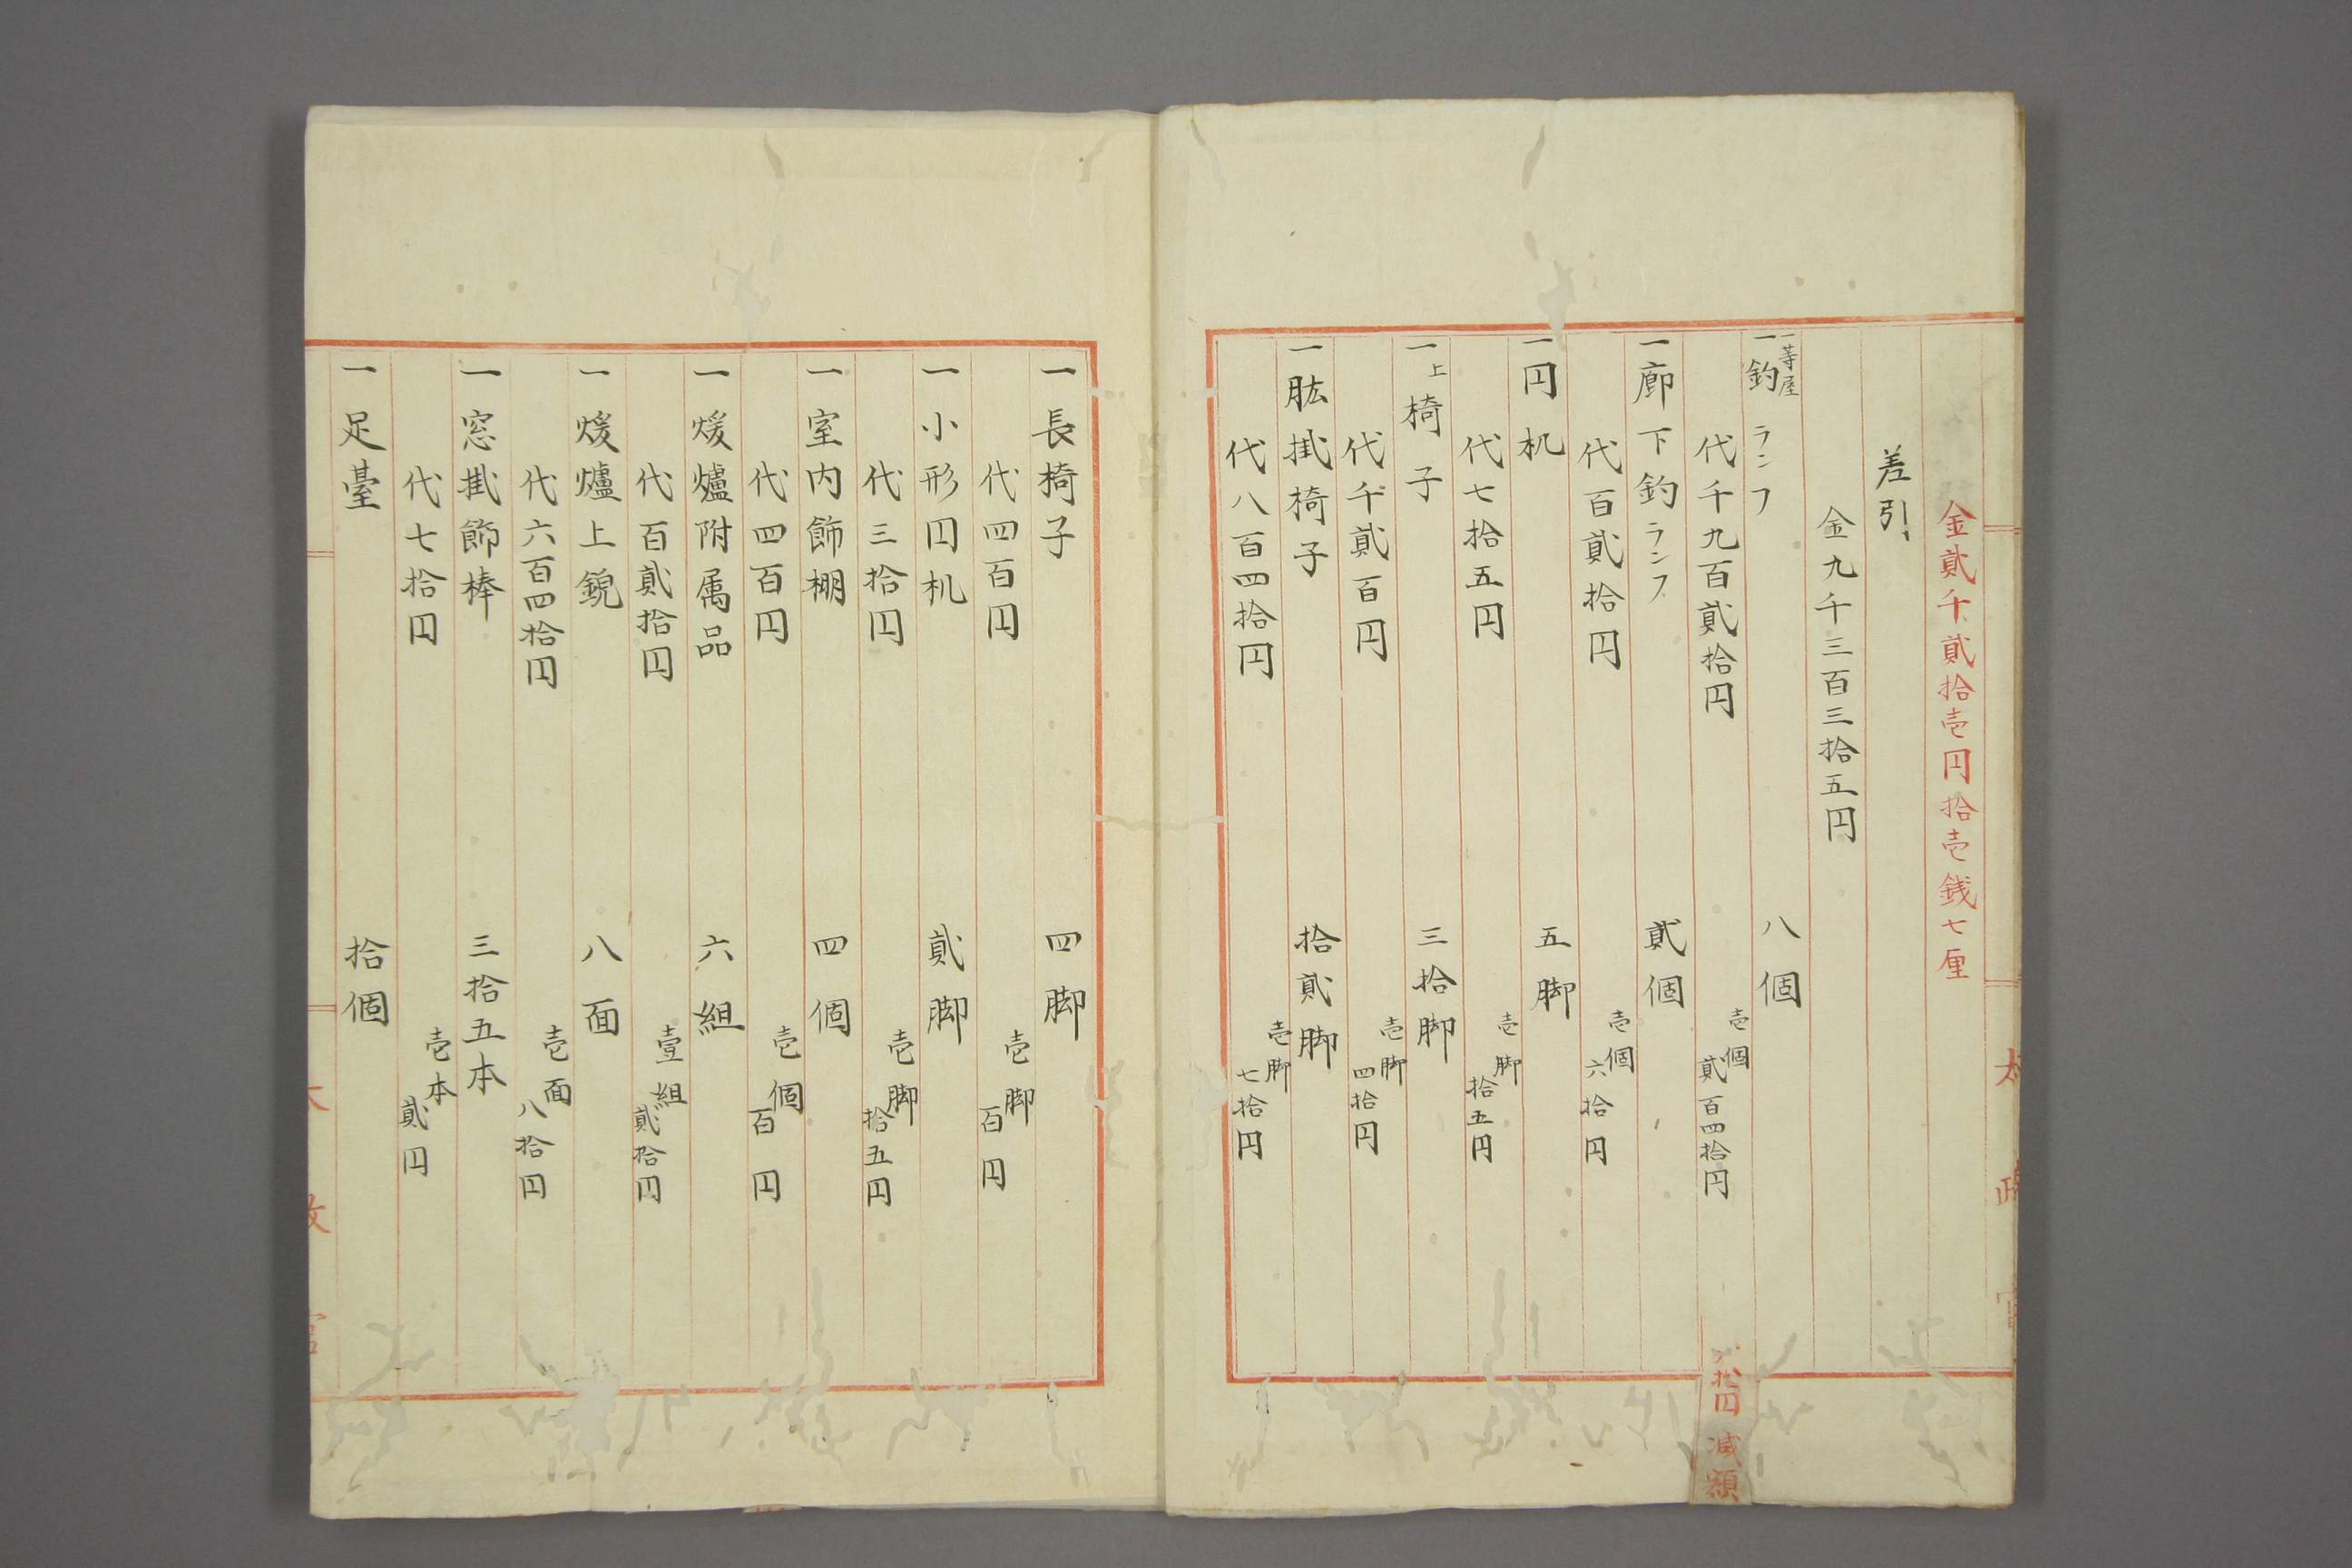 金貳千貳拾壱円拾壱銭七厘
差引
金九千三百三拾五円
一一等屋釣ランフ 八個
代千九百貳拾円 壱個貳百四拾円
拾円減額
一廊下釣ランフ 貳個
代百貳拾円 壱個六拾円
一円机 五脚
代七拾五円 壱脚拾五円
一上椅子 三拾脚
代千貳百円 壱脚四拾円
一肱掛椅子 拾貳脚
代八百四拾円 壱脚七拾円
太政官
一長椅子 四脚
代四百円 壱脚百円
一小形円机 貳脚
代三拾円 壱脚拾五円
一室内飾棚 四個
代四百円 壱個百円
一煖爐附属品 六組
代百貳拾円 壹組貳拾円
一煖爐上鏡 八面
代六百四拾円 壱面八拾円
一窓掛飾棒 三拾五本
代七拾円 壱本貳円
一足臺 拾個